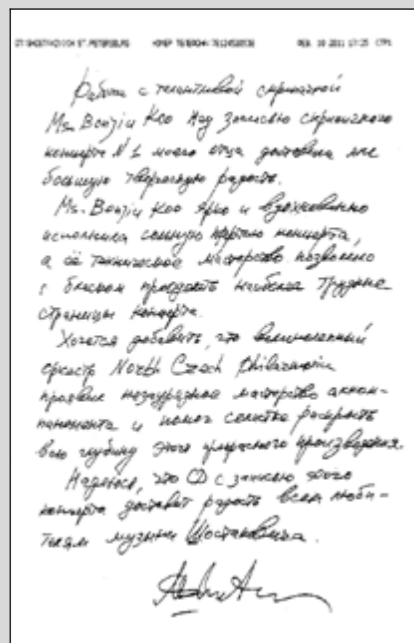 ST.PETERSBURG
Работа с талантливой скрипачкой
Ms. Bonjiu Koo над записью скрипичного
концерта N 1 моего отца доставила мне
большую творческую радость.
Ms. Bonjiu Koo ярко и вдохновенно
исполнила сольную партию концерта,
а её техническое мастерство позволило
с блеском преодолеть наиболее трудные
страницы концерта.
Хочется добавить, что великолепный
оркестр North Czech Philharmonic
проявил незаурядное мастерство акком-
панемента и помог солистке раскрыть
всю глубину этого прекрасного произведения.
Надеюсь, что CD с записью этого
концерта доставит радость всем люби-
телям музыки Шостаковича.